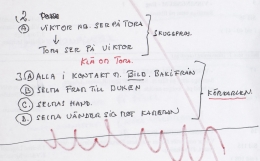 2.
A VIKTOR NB. SER PÅ TORA
SKUGGPROJ.
TORA SER PÅ VIKTOR
KLÄ OM TORA.
3. A ALLA I KONTAKT M. BILD. BAKIFRÅN
B SELMA FRAM TILL DUKEN
KÖRKARLEN
C. SELMAS HAND.
D. SELMA VÄNDER SIG MOT KAMERAN